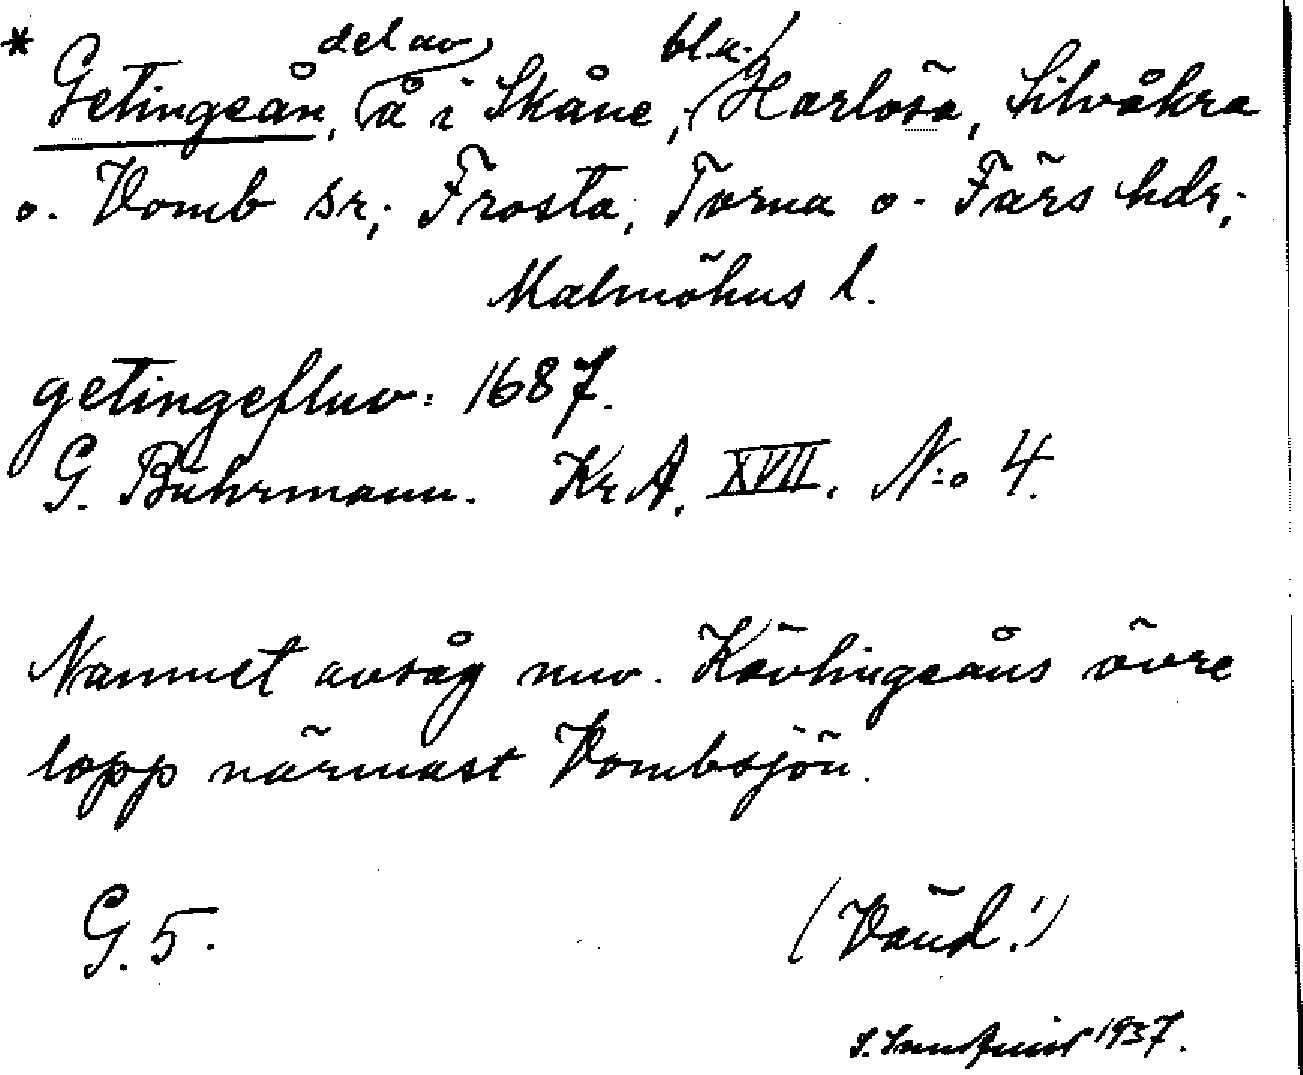 * Getingeån, del av å i Skåne, bl.a. Harlösa, Silvåkra
o. Vomb sr; Frosta, Torna o. Färs hdr;
Malmöhus l.
getingefluv: 1687.
G. Buhrmann. Kr A. XVII. N:o 4.
Namnet avsåg nuv. Kävlingeåns övre
lopp närmast Vombsjön.
G. 5. (Vänd!)
1937.